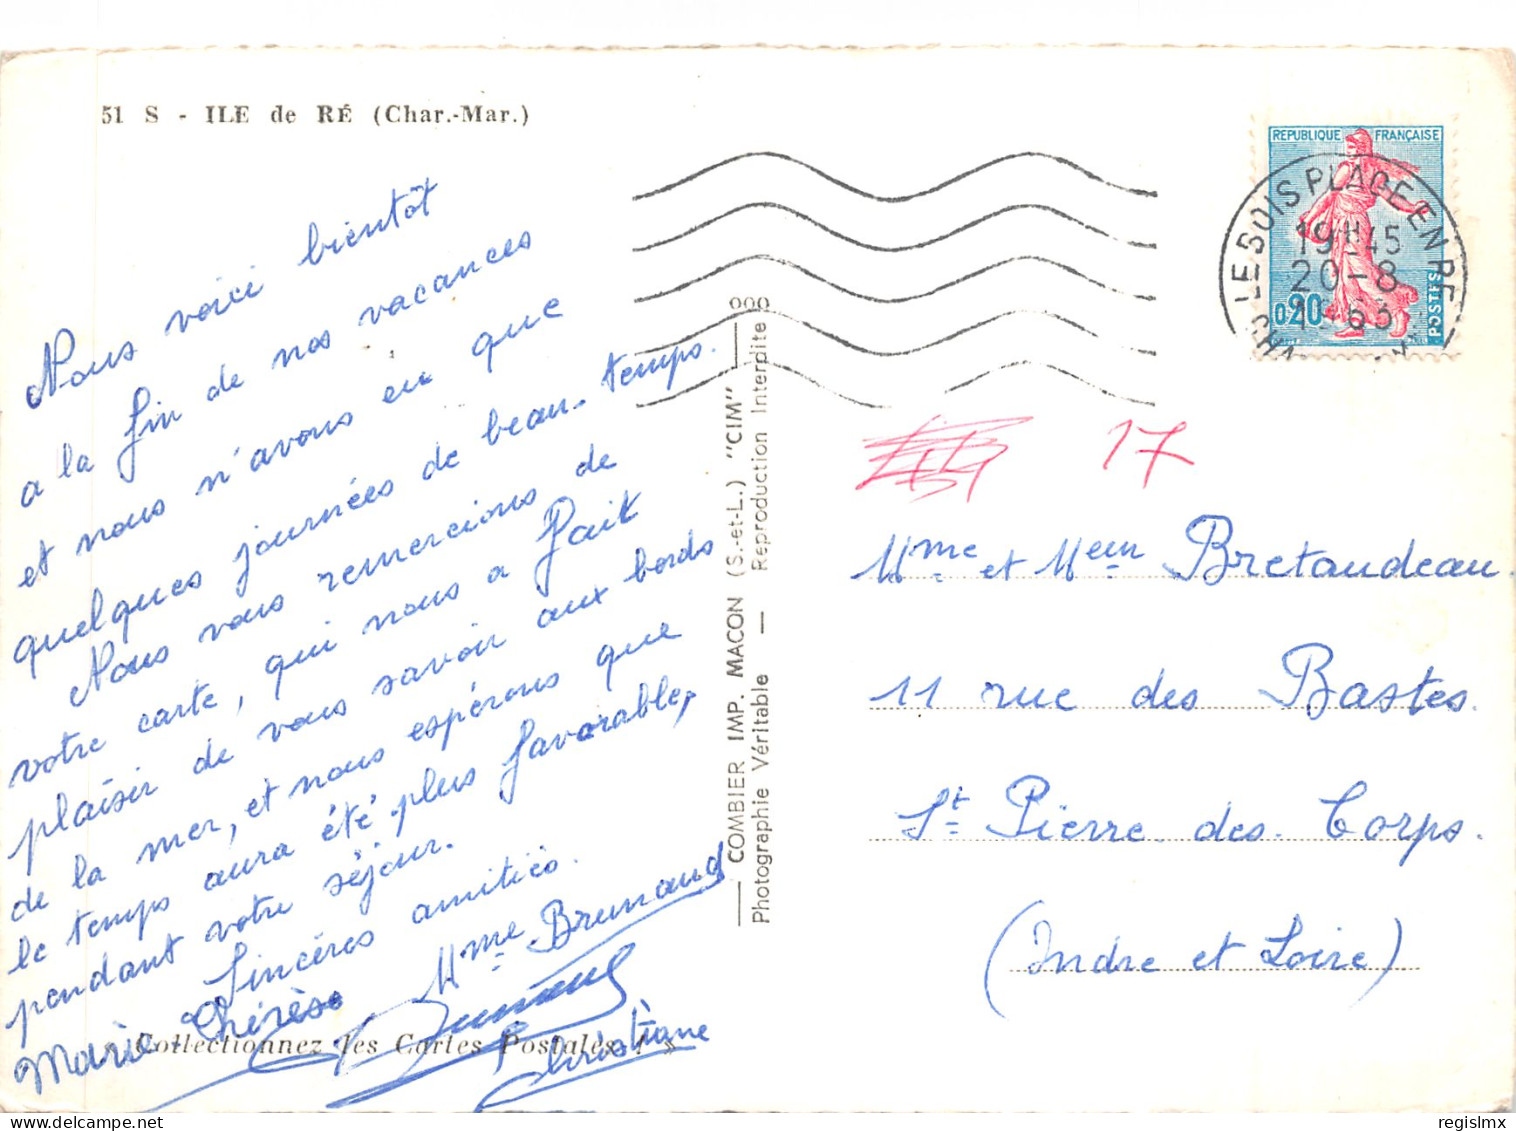 51 S - ILE de RÉ (Char.-Mar.)
Nous voici bientôt
a la fin de nos vacances
et nous n'avons eu que
quelques journées de beau-temps.
Nous vous remercions de
votre carte, qui nous a fait
plaisir de vous savoir aux bords
de la mer, et nous espérons que
le temps aura été plus favorable,
pendant votre séjour.
Sincères amitiés.
Mme Brunaud
Marie-Thérèse
Christiane
Collectionnez les Cartes Postales
COMBIER IMP. MACON (S.-et-L.) "CIM"
Photographie Véritable — Reproduction Interdite
REPUBLIQUE FRANÇAISE
0,20
POSTES
LE BOIS PLAGE EN RE
19H45
20-8
1963
17
Mme et Meur Bretaudeau
11 rue des Bastes.
St Pierre des Corps.
(Indre et Loire)
regislmx